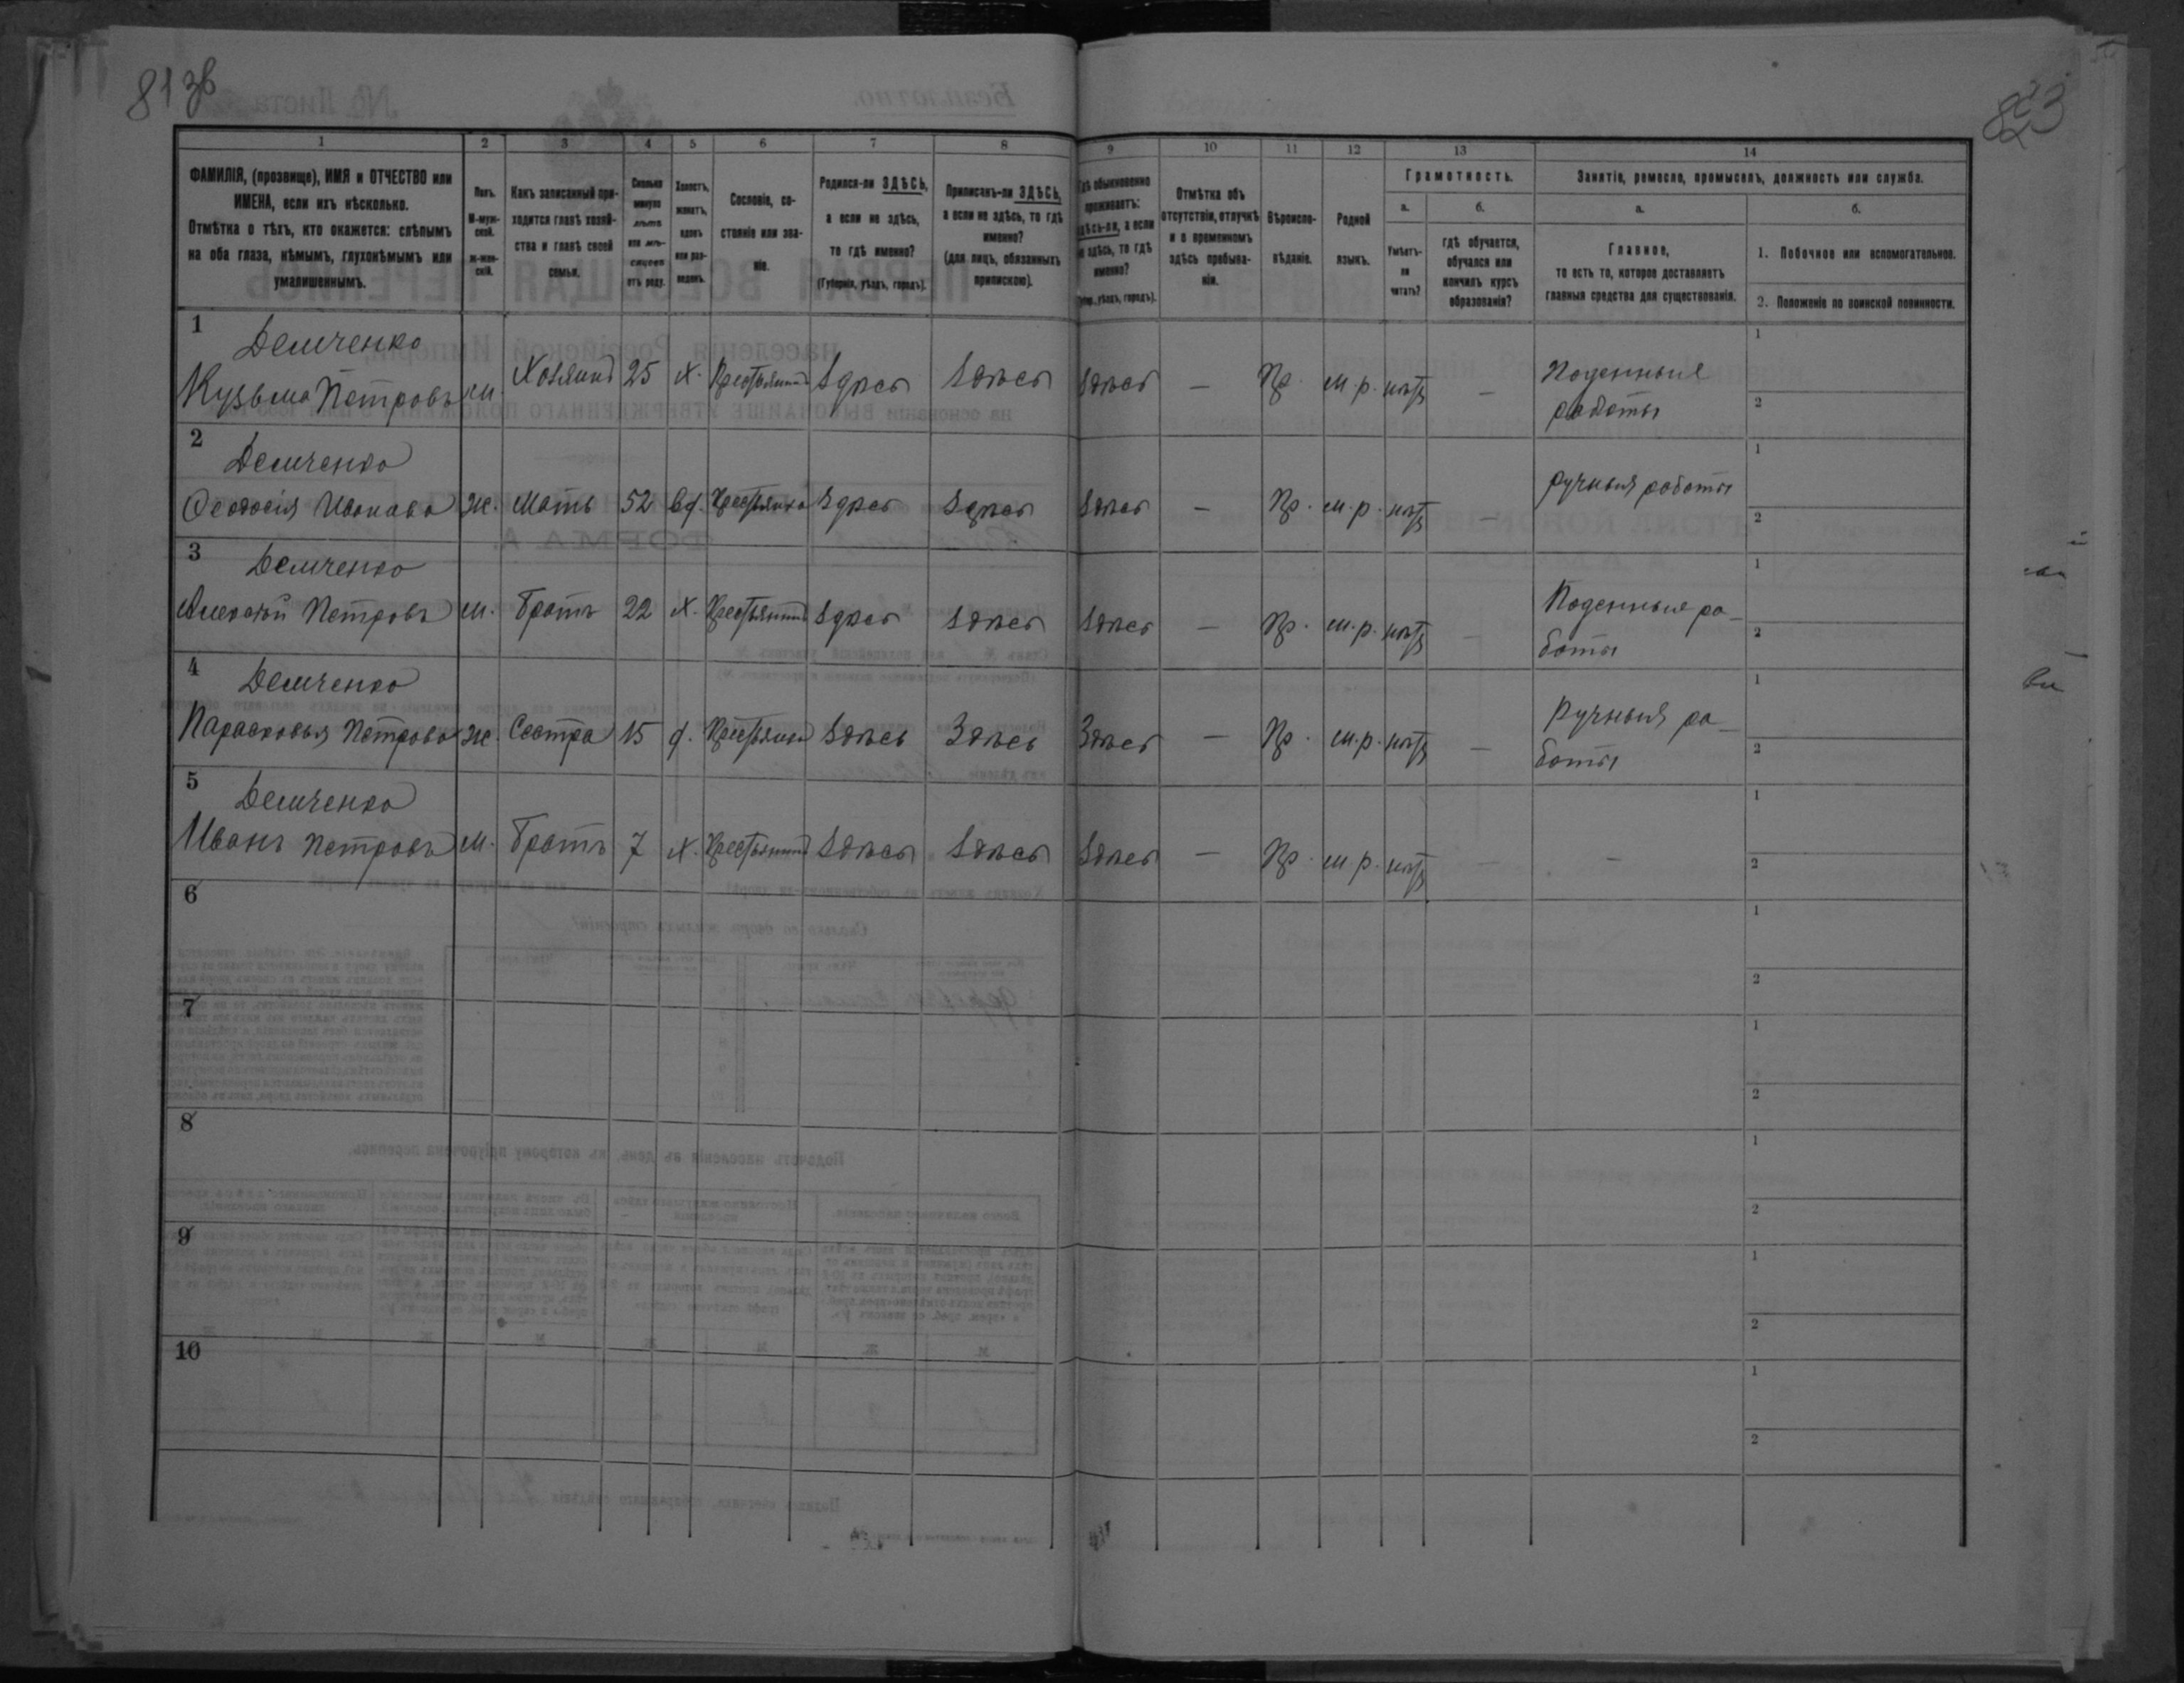 81 зв
823
1
2
3
4
5
6
7
8
9
10
11
12
13
14
ФАМИЛІЯ, (прозвище), ИМЯ и ОТЧЕСТВО или
ИМЕНА, если ихъ нѣсколько.
Отмѣтка о тѣхъ, кто окажется: слѣпымъ
на оба глаза, нѣмымъ, глухонѣмымъ или
умалишеннымъ.
Полъ.
М-муж-
ской.
ж-жен-
скій.
Какъ записанный при-
ходится главѣ хозяй-
ства и главѣ своей
семьи.
Сколько
минуло
лѣтъ
или мѣ-
сяцевъ
отъ роду.
Холостъ,
женатъ,
вдовъ
или раз-
веденъ.
Сословіе, со-
стояніе или зва-
ніе.
Родился-ли ЗДѢСЬ,
а если не здѣсь,
то гдѣ именно?
(Губернія, уѣздъ, городъ).
Приписанъ-ли ЗДѢСЬ,
а если не здѣсь, то гдѣ
именно?
(для лицъ, обязанныхъ
припискою).
Гдѣ обыкновенно
проживаетъ:
здѣсь-ли, а если
не здѣсь, то гдѣ
именно?
(Губер., уѣздъ, городъ).
Отмѣтка объ
отсутствіи, отлучкѣ
и о временномъ
здѣсь пребыва-
ніи.
Вѣроиспо-
вѣданіе.
Родной
языкъ.
Грамотность.
а.
Умѣетъ-
ли
читать?
б.
гдѣ обучается,
обучался или
кончилъ курсъ
образованія?
Занятіе, ремесло, промыселъ, должность или служба.
а.
Главное,
то есть то, которое доставляетъ
главныя средства для существованія.
б.
1. Побочное или вспомогательное.
2. Положеніе по воинской повинности.
1 Демченко
Кузьма Петровъ м. Хозяинъ 25 х. Крестьянинъ Здѣсь Здѣсь Здѣсь — Пр. м.р. нѣтъ — Поденныя
работы
1
2
2 Демченко
Ѳеодосія Иванова ж. Мать 52 вд. Крестьянка Здѣсь Здѣсь Здѣсь — Пр. м.р. нѣтъ — ручныя работы
1
2
3 Демченко
Алексѣй Петровъ м. Братъ 22 х. Крестьянинъ Здѣсь Здѣсь Здѣсь — Пр. м.р. нѣтъ — Поденныя ра-
боты
1
2
4 Демченко
Парасковья Петрова ж. Сестра 15 д. Крестьянка Здѣсь Здѣсь Здѣсь — Пр. м.р. нѣтъ — Ручныя ра-
боты
1
2
5 Демченко
Иванъ Петровъ м. Братъ 7 х. Крестьянинъ Здѣсь Здѣсь Здѣсь — Пр. м.р. нѣтъ — —
1
2
6
1
2
7
1
2
8
1
2
9
1
2
10
1
2